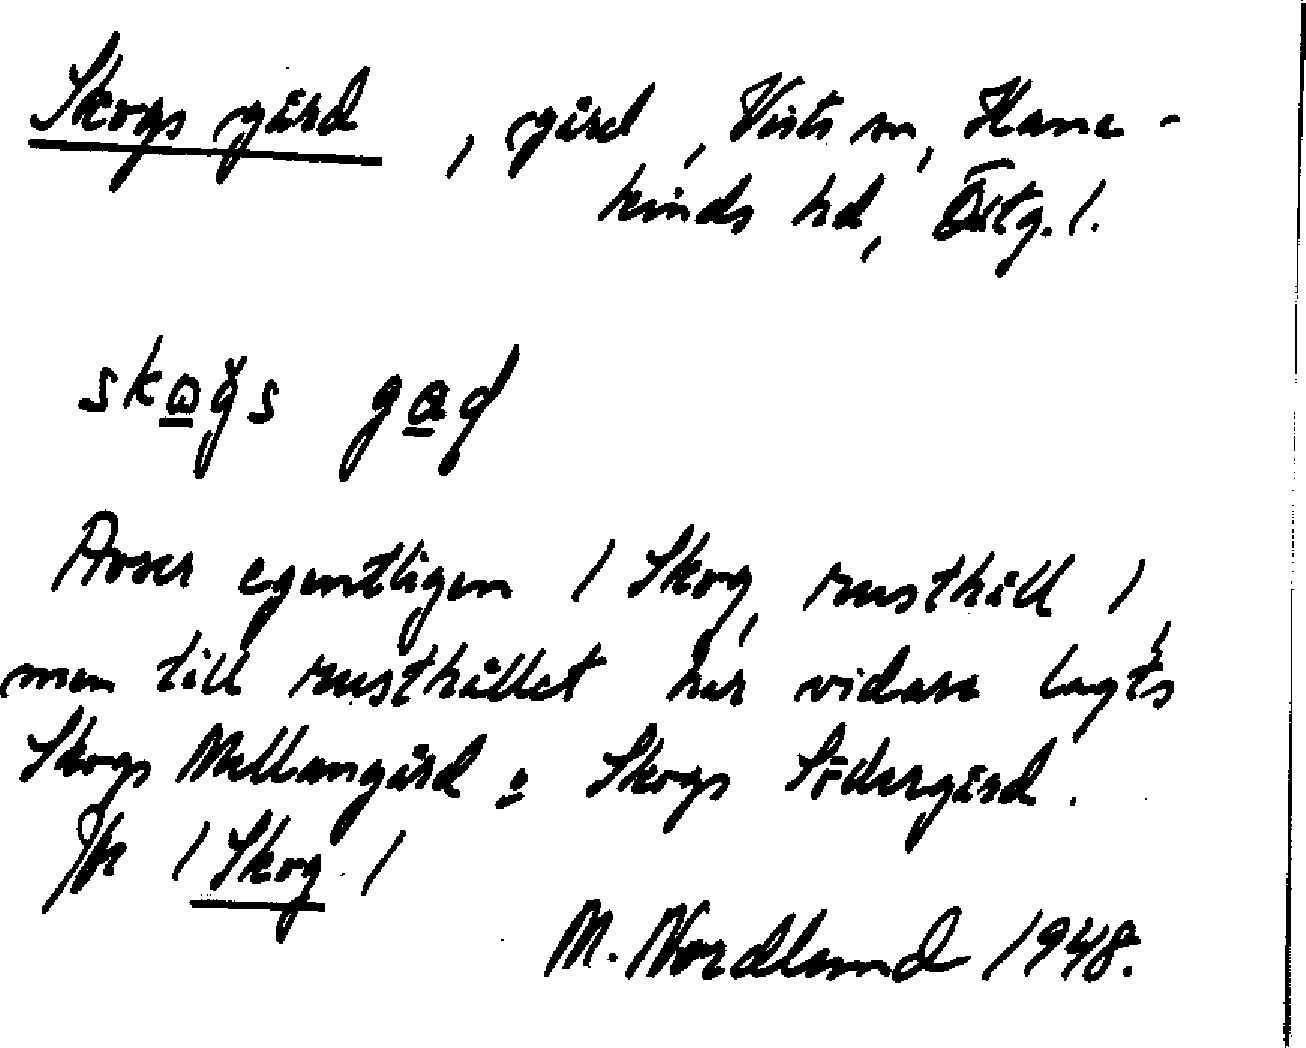 Skogs gård , gård , Vists sn, Hane-
kinds hd, Östg. l.
Avser egentligen / Skog, rusthåll /
men till rusthållet har vidare lagts
Skogs Mellangård o Skogs Södergård.
Jfr / Skog /
M. Nordlund 1948.